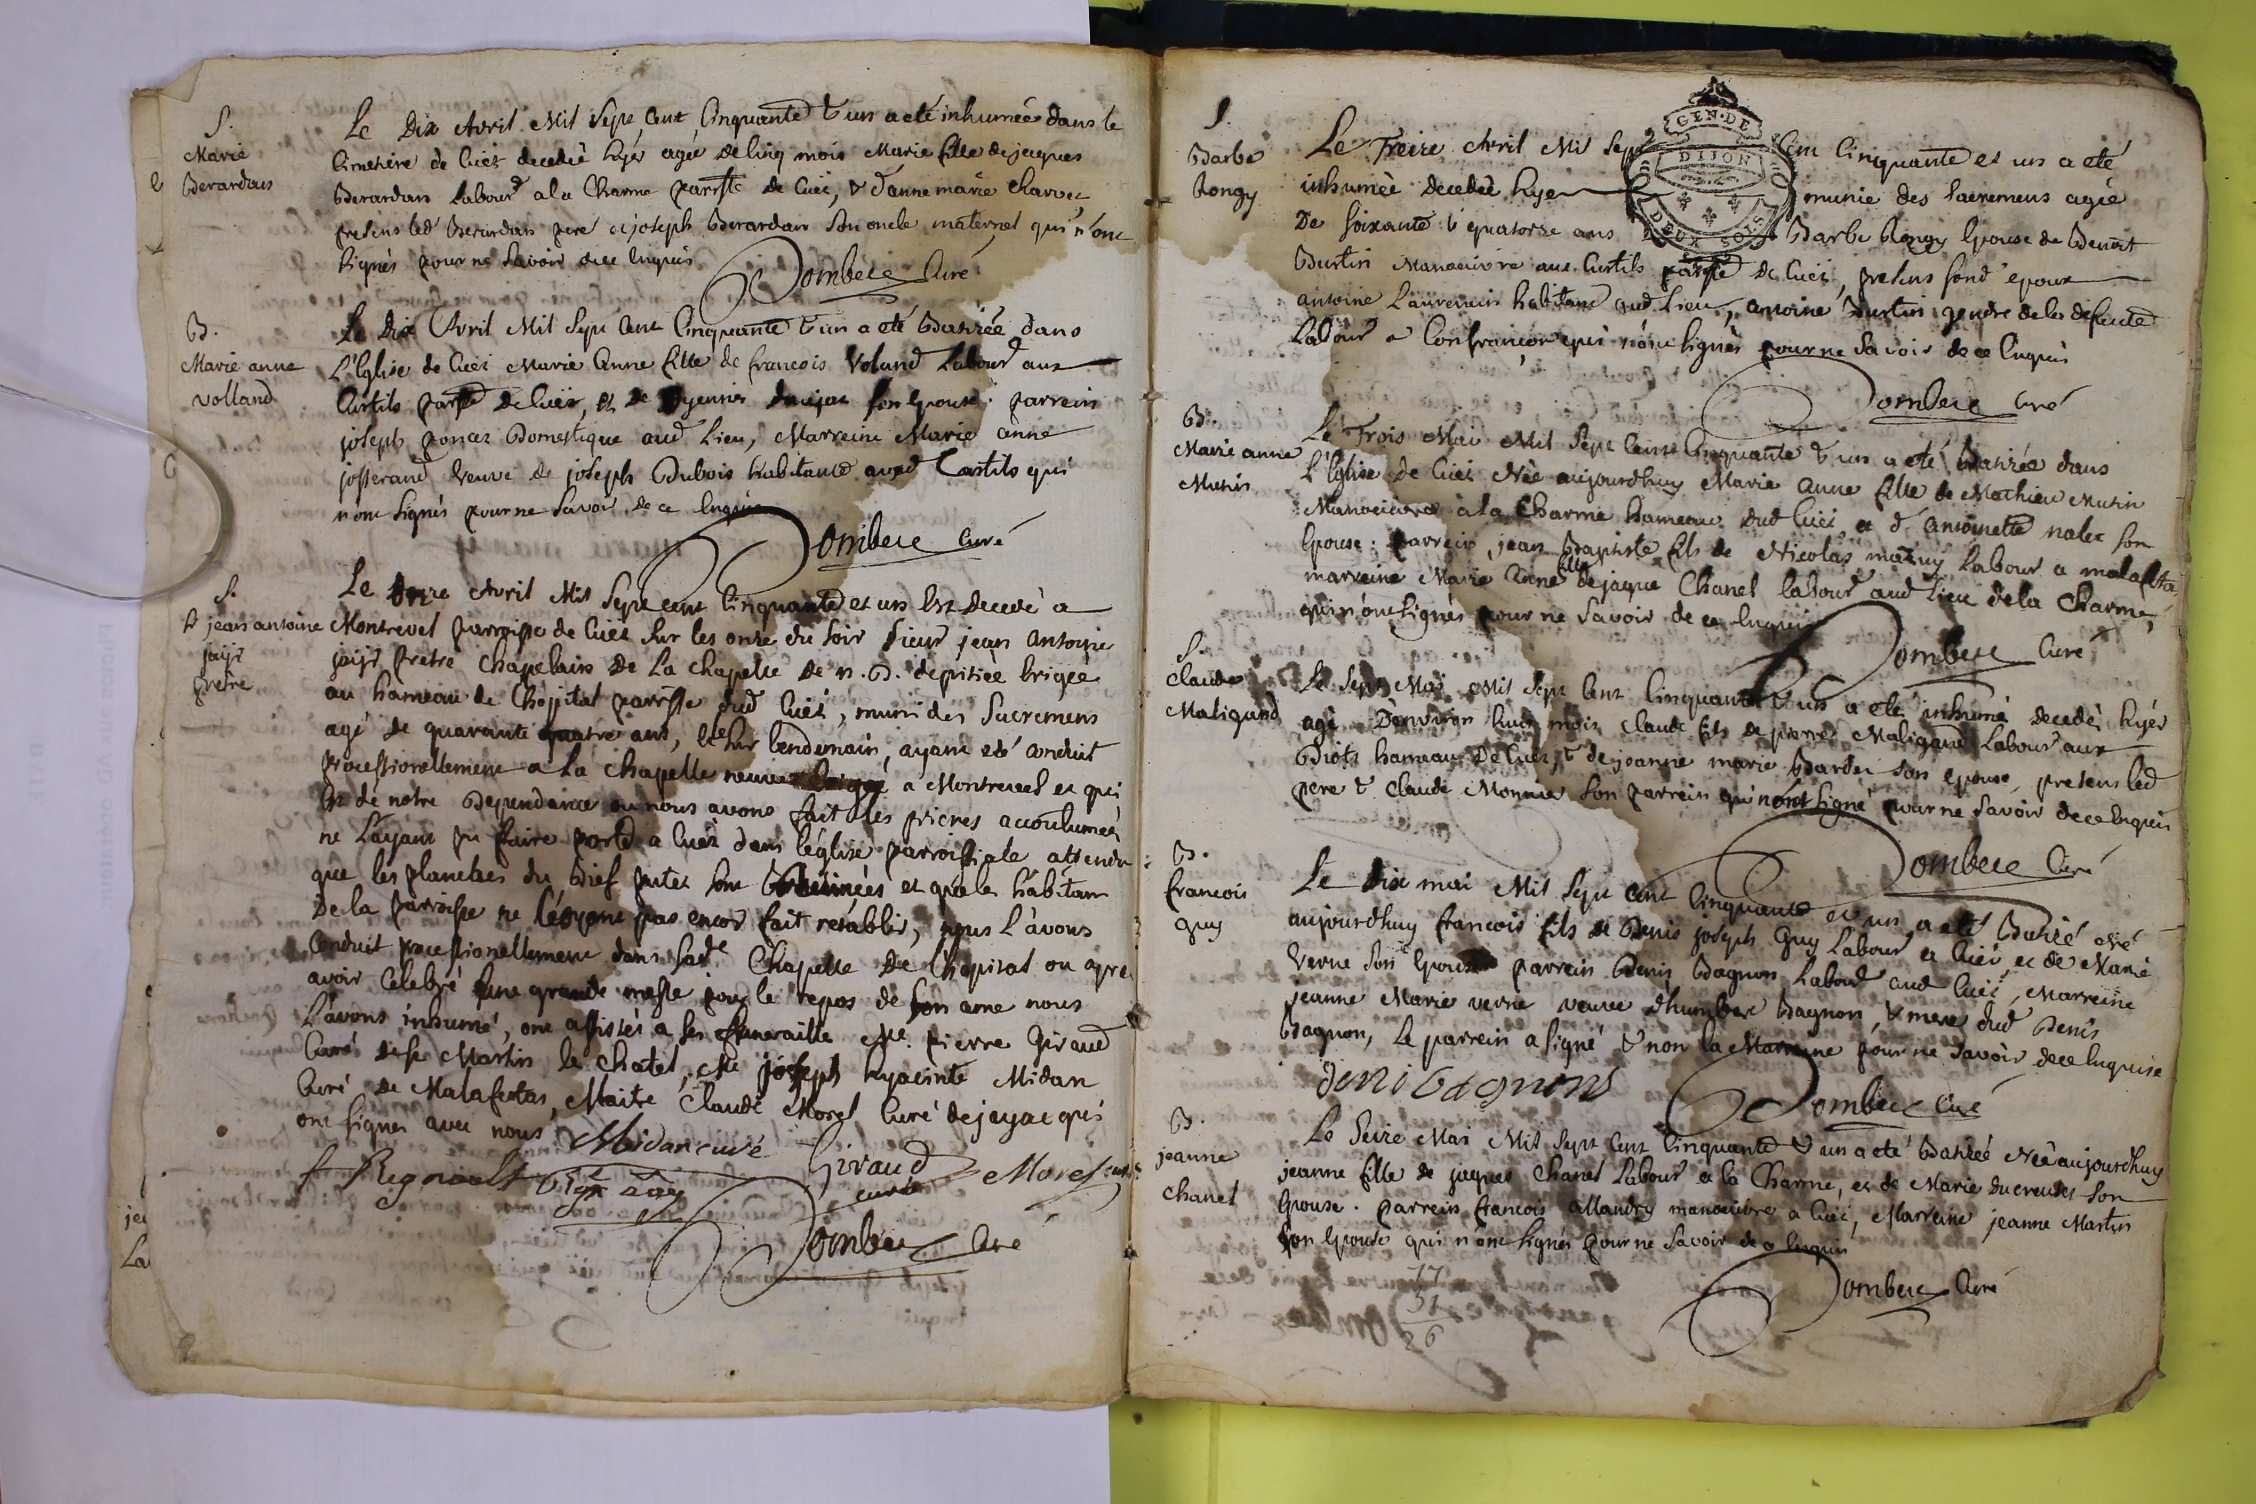 S.
Marie
Berardan
Le Dix Avril Mil Sept Cent Cinquante & un a eté inhumée dans le
Cimetiere de Cuet decedée hyer agée de Cinq mois Marie fille de jaques
Berardan Labour a la Charme parrsse de Cuet, & d'anne marie Charvet
presens led Berardan pere et joseph Berardan Son oncle maternel qui n'ont
Signés pour ne Savoir de ce Enquis
Dombere Curé
B.
Marie anne
volland
Le Dix Avril Mil Sept Cent Cinquante & un a eté Batizée dans
L'Eglise de Cuet Marie Anne fille de francois Voland Labour aux
Curtils parsse de Cuet, et de son Epouse. parrein
joseph poncet Domestique aud Lieu, Marreine Marie anne
josserand Veuve de joseph Dubois habitante auxd Curtils qui
n'ont Signés pour ne Savoir de ce Enquis
Dombere Curé
S.
Sr jean antoine
jayr
prêtre
Le Onze Avril Mil Sept cent Cinquante et un Est Decedé a
Montrevel parroisse de Cuet Sur les onze du Soir Sieur jean Antoine
jayr prêtre Chapelain de La Chapelle de N. D. de pitiée Erigée
au hameau de Chopital parrsse dud Cuet, muni des Sacremens
agé de quarante quatre ans, et Sur lendemain, ayant eté Conduit
processionellement a La Chapelle neuve Erigée a Montrevel et qui
Est de notre Dependance ou nous avons fait les prieres accoutumées
ne L'ayant pu faire porter a Cuet dans l'église parroissiale attendu
que les planches du Bief sont et que les habitans
De la parroisse ne pas encor fait retablir, nous l'avons
Conduit processionellement dans Sade Chapelle de Chopital ou apres
avoir Celebré une grande messe pour le repos de Son ame nous
L'avons inhumé, ont assistés a Ses funeraille Mre pierre Giraud
Curé de St Martin le Chatel, Me joseph hyacinte Midan
Curé de Malafretas, Maitre Claude Morel Curé de jayac qui
ont Signes avec nous
Midan curé
Giraud
curé
Morel curé
Regnault
Dombere Curé
S.
Barbe
Rongy
Le Treize Avril Mil Sept Cent Cinquante et un a eté
inhumée decedée hyer munie des Sacremens agée
De Soixante & quatorze ans Barbe Rongy Epouse de Benoit
Burtin Manoeuvre aux Curtils parsse de Cuet, presens sond epoux
antoine Laurencin habitant aud Lieu, antoine Burtin gendre de la defunte
Labour a Confrançon qui n'ont Signés pour ne Savoir de ce Enquis
Dombere Curé
GEN. DE
DIJON
DEUX SOLS
B.
Marie anne
Mutin
Le Trois Mai Mil Sept Cent Cinquante & un a eté Batizée dans
L'Eglise de Cuet Née aujourdhuy Marie Anne fille de Mathieu Mutin
Manoeuvre a la Charme hameau dud Cuet et d'antoinette son
Epouse. parrein, jean Baptiste fils de Nicolas Labour a malafreta
marreine Marie Anne fille de jaque Chanel labour aud Lieu de la Charme,
qui n'ont Signés pour ne Savoir de ce Enquis
Dombere Curé
S.
Claude
Maligand
Le Sept Mai Mil Sept Cent Cinquante & un a eté inhumé decedé hyér
agé D'environ huit mois Claude fils de pierre Maligand Labour aux
Biots hameau de Cuet, & de jeanne marie Barder son epouse, presens led
pere & Claude Monnier Son parrein qui n'ont Signé pour ne Savoir de ce Enquis
Dombere Curé
B.
francois
guy
Le Dix mai Mil Sept Cent Cinquante et un a eté Batizé Né
aujourdhuy francois fils de Denis joseph Guy Labour a Cuet, et de Marie
Verne Son Epouse parrein Denis Bagnon Labour aud Cuet, Marreine
jeanne Marie verne veuve d'humbert Bagnon, & mere dud Denis
Bagnon, Le parrein a Signé & non la Marreine pour ne Savoir de ce Enquise
deni bagnon
Dombere Curé
B.
jeanne
Chanel
Le Seize Mai Mil Sept Cent Cinquante & un a eté Batizéé Née aujourdhuy
jeanne fille de jaques Chanel Labour a la Charme, et de Marie ducreuset Son
Epouse. parrein francois Allandry manoeuvre a Cuet, Marreine jeanne Martin
Son Epouse qui n'ont Signés pour ne Savoir de ce Enquis
Dombere Curé
26